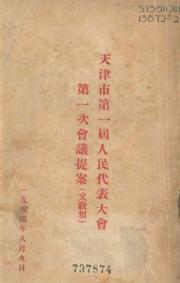 天津市第一届人民代表大會
第一次會議提案(文教類)
一九五四年八月九日
737874